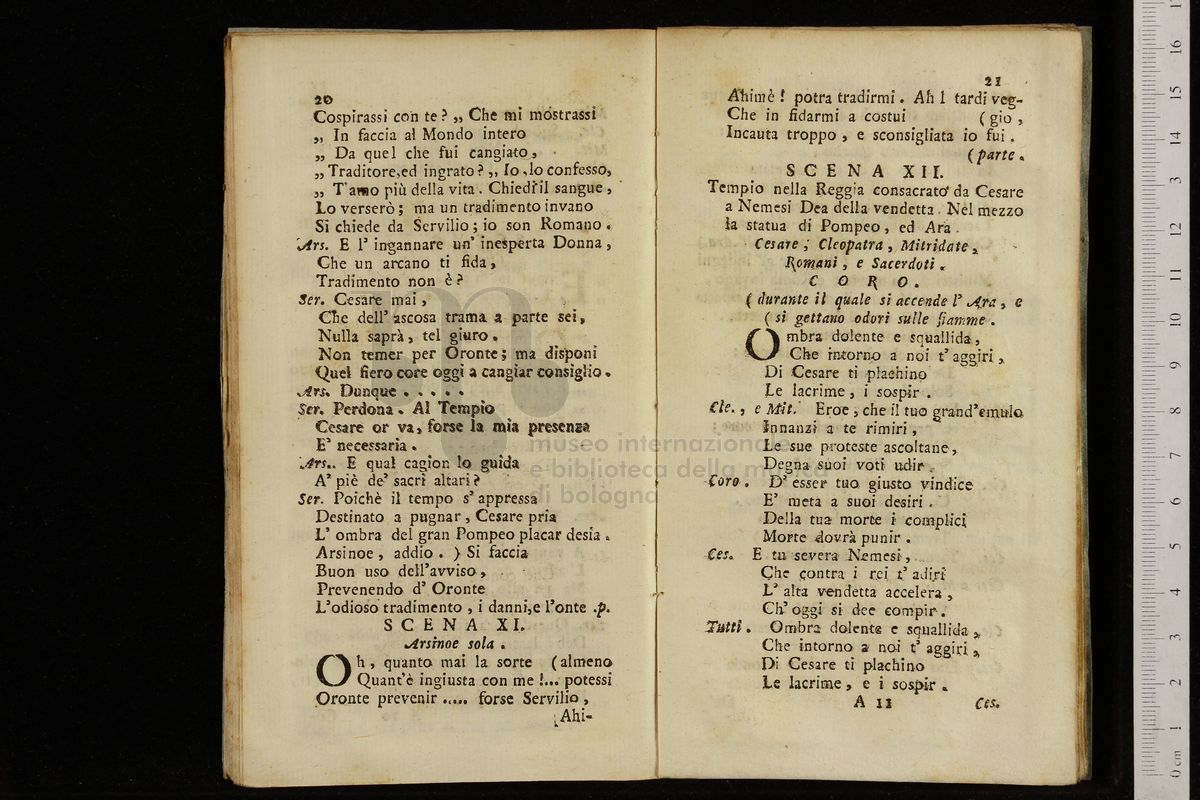 20
Cospirassi con te? „ Che mi mostrassi
„ In faccia al Mondo intero
„ Da quel che fui cangiato,
„ Traditore, ed ingrato? „ Io, lo confesso,
„ T'amo più della vita. Chiedi il sangue,
Lo verserò; ma un tradimento invano
Si chiede da Servilio; io son Romano.
Ars. E l' ingannare un' inesperta Donna,
Che un arcano ti fida,
Tradimento non è?
Ser. Cesare mai,
Che dell' ascosa trama a parte sei,
Nulla saprà, tel giuro.
Non temer per Oronte; ma disponi
Quel fiero core oggi a cangiar consiglio.
Ars. Dunque . . . . .
Ser. Perdona. Al Tempio
Cesare or va, forse la mia presenza
E' necessaria.
Ars. E qual cagion lo guida
A' piè de' sacri altari?
Ser. Poichè il tempo s' appressa
Destinato a pugnar, Cesare pria
L' ombra del gran Pompeo placar desia.
Arsinoe, addio. ) Si faccia
Buon uso dell'avviso,
Prevenendo d' Oronte
L'odioso tradimento, i danni, e l'onte .p.
SCENA XI.
Arsinoe sola.
Oh, quanto mai la sorte (almeno
Quant'è ingiusta con me!... potessi
Oronte prevenir ..... forse Servilio,
Ahi-
21
Ahimè! potra tradirmi. Ah! tardi veg-
Che in fidarmi a costui (gio,
Incauta troppo, e sconsigliata io fui.
(parte.
SCENA XII.
Tempio nella Reggia consacrato da Cesare
a Nemesi Dea della vendetta. Nel mezzo
la statua di Pompeo, ed Ara.
Cesare, Cleopatra, Mitridate,
Romani, e Sacerdoti.
CORO.
( durante il quale si accende l' Ara, e
( si gettano odori sulle fiamme.
Ombra dolente e squallida,
Che intorno a noi t' aggiri,
Di Cesare ti plachino
Le lacrime, i sospir.
Cle., e Mit. Eroe, che il tuo grand'emulo
Innanzi a te rimiri,
Le sue proteste ascoltane,
Degna suoi voti udir.
Coro. D' esser tuo giusto vindice
E' meta a suoi desiri.
Della tua morte i complici
Morte dovrà punir.
Ces. E tu severa Nemesi,
Che contra i rei t' adiri
L' alta vendetta accelera,
Ch' oggi si dee compir.
Tutti. Ombra dolente e squallida,
Che intorno a noi t' aggiri,
Di Cesare ti plachino
Le lacrime, e i sospir.
A 11 Ces.
museo internazionale
e biblioteca della musica
di bologna
0 cm 1 2 3 4 5 6 7 8 9 10 11 12 13 14 15 16